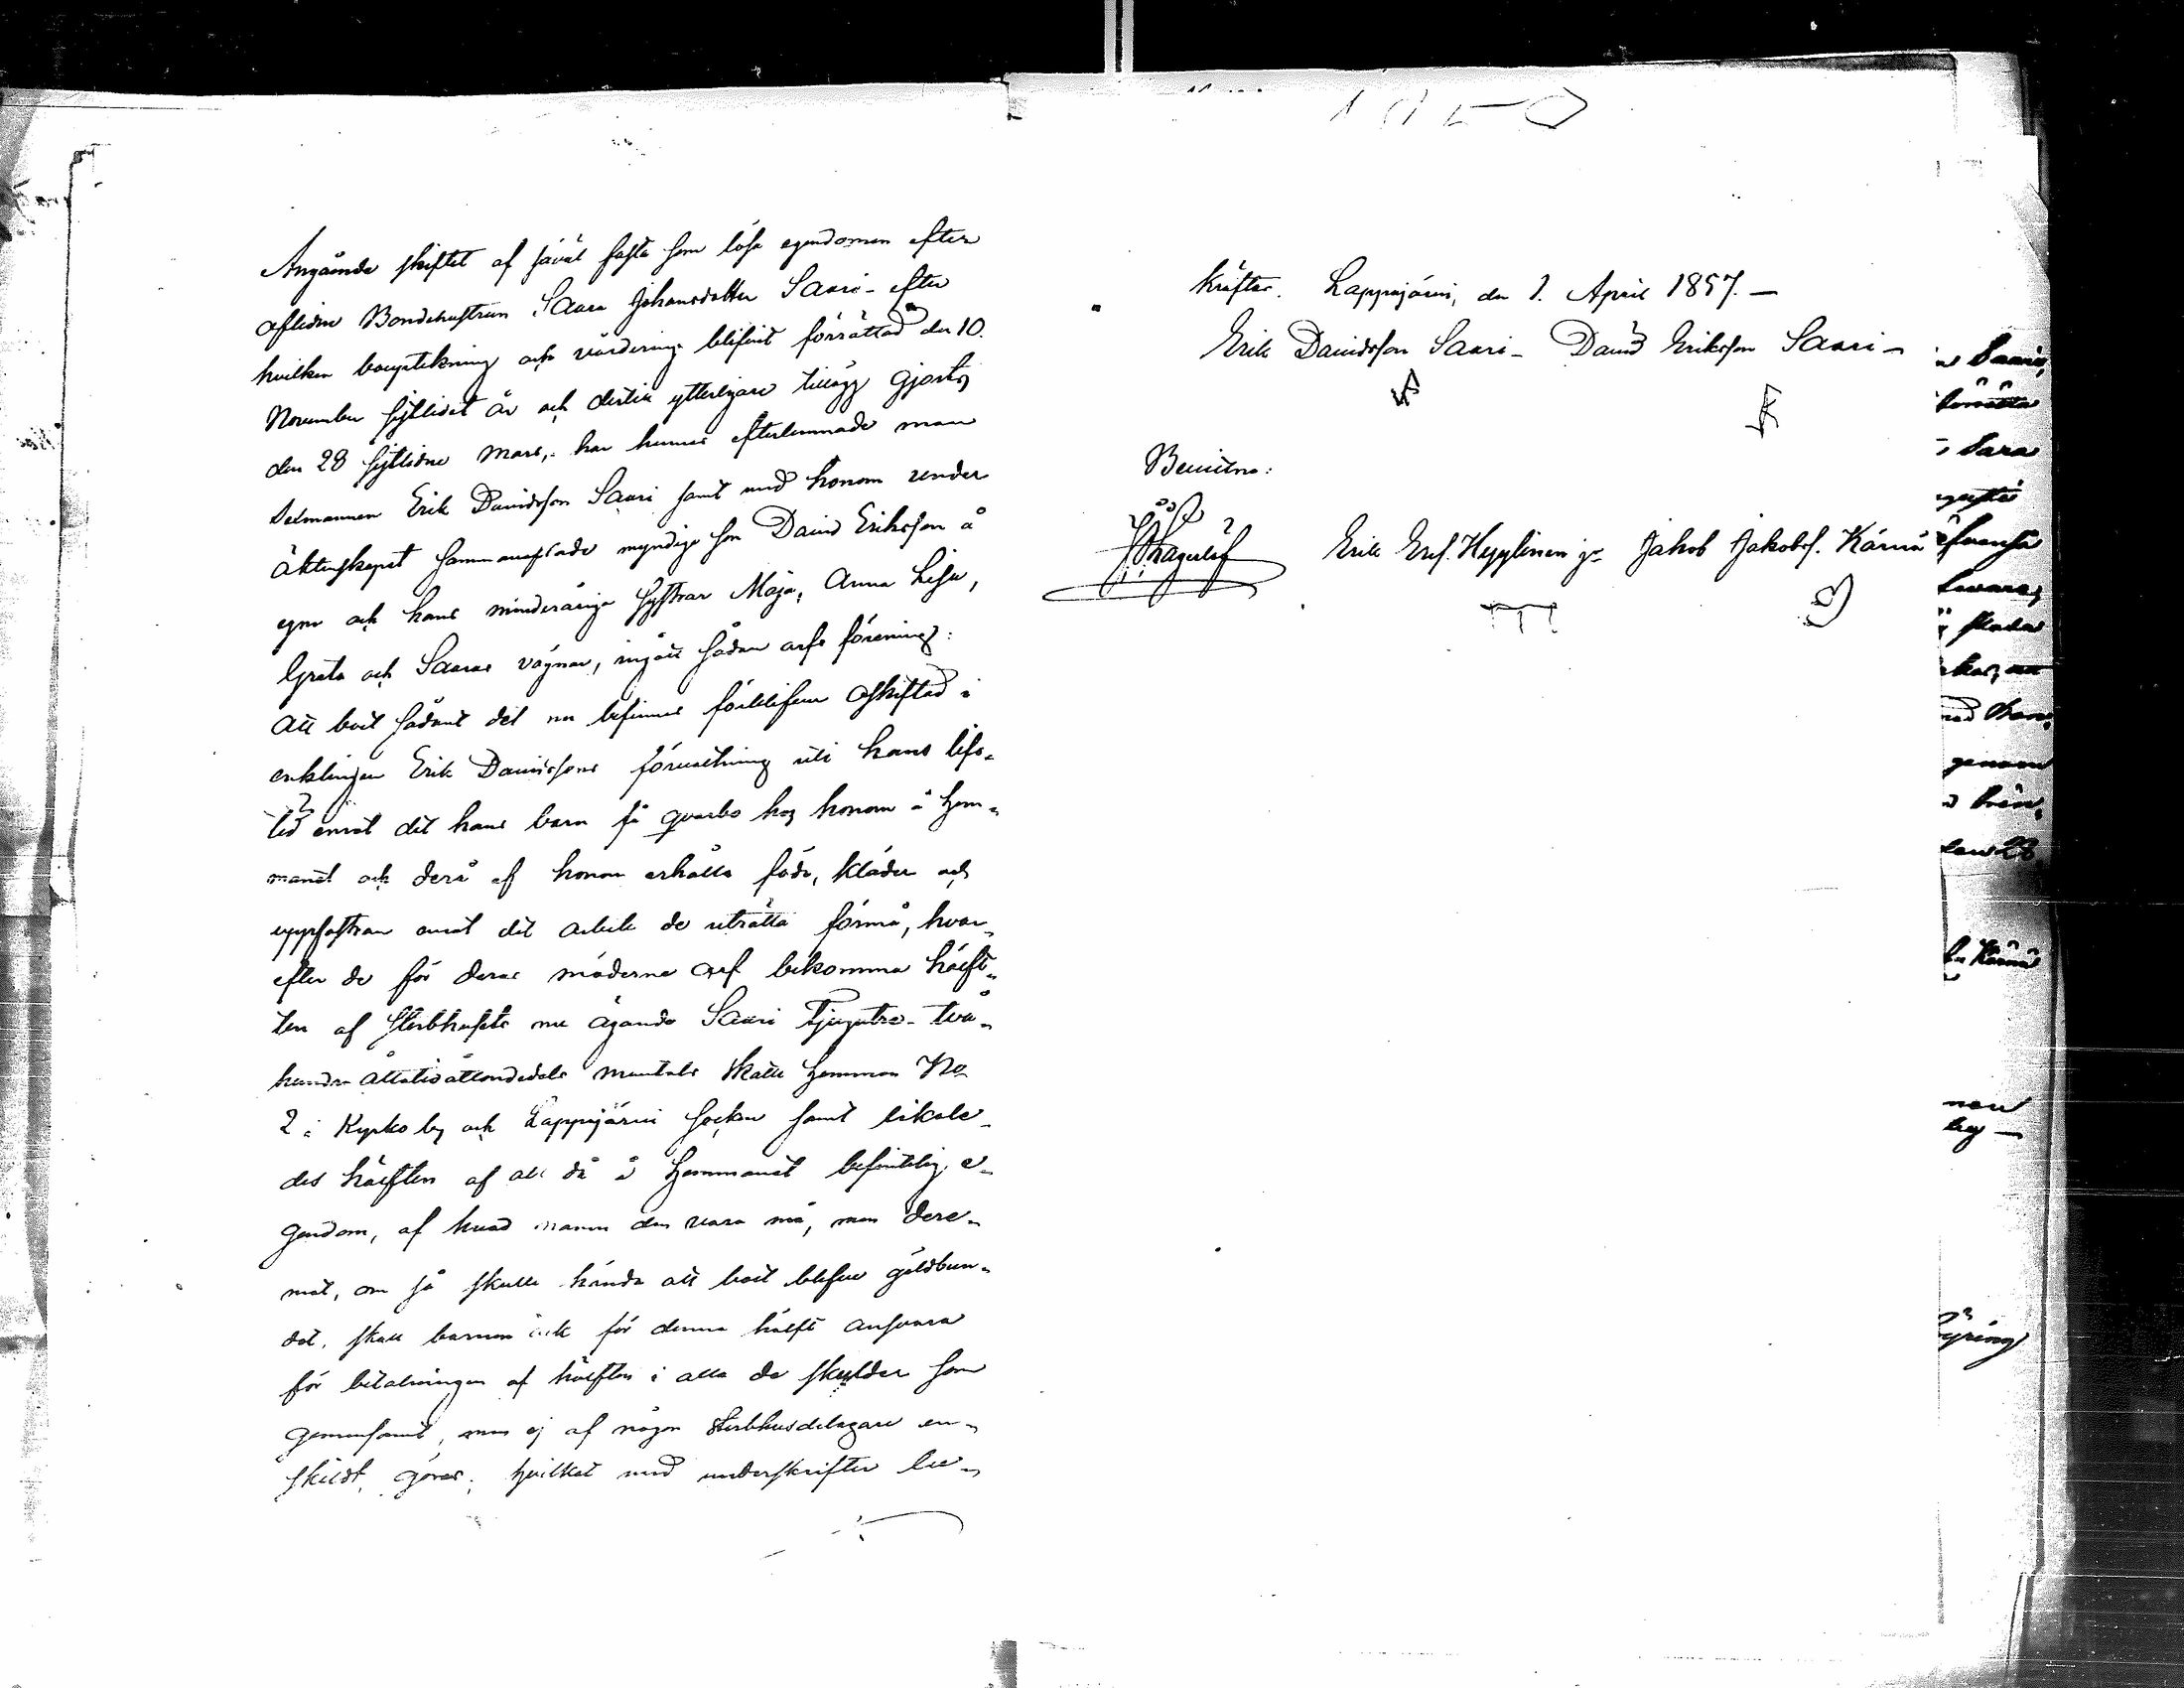 Angående skiftet af såväl fasta som lösa egendomen efter
aflidne Bondehustrun Saara Johansdotter Saari efter
hvilken bouptekning och värdering blifvit förrättad den 10.
November sistlidet år och dertill ytterligare tillägg gjorts
den 28 sistlidne Mars, har hennes efterlemnade man
Sexmannen Erik Davidsson Saari samt med honom under
äktenskapet sammanaflade myndige son David Eriksson å
egna och hans minderåriga systrar Maja, Anna Lisa,
Greta och Saaras vägnar, ingått sådan arfs förening:
att boet sådant det nu befinnes förblifver oskiftad i
enklingen Erik Davidssons förvaltning uti hans lifs-
tid emot det hans barn få qvarbo hos honom å hem-
manet och derå af honom erhålla föda, kläder och
uppfostran emot det arbete de uträtta förmå, hvar-
efter de för deras möderne arf bekomma hälft-
ten af Sterbhusets nu ägande Saari Tjugutre- två-
hundra åttatioåttondedels mantals Skatte hemman No
2 i Kyrko by och Lappajärvi Socken samt likale-
des hälften af all då å hemmanet befintlig e-
gendom, af hvad namn den vara må, men dere-
mot, om så skulle hända att boet blefve gäldbun-
det, skall barnen ock för denna hälft ansvara
för betalningen af hälften i alla de skulder som
gemensamt, men ej af någon Sterbhusdelagare en-
skildt, göras; hvilket med underskrifter be-
kräftas. Lappajärvi, den 1. April 1857.
Erik Davidsson Saari - David Eriksson Saari -
Bevittna:
Erik Ersf. Hyypinen jr Jakob Jakobsf. Kärnä